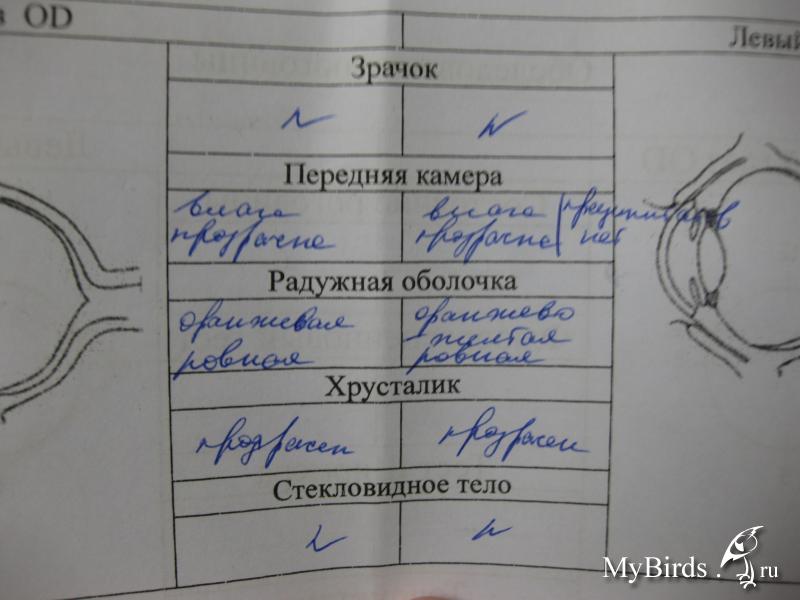 з OD
Левый
Зрачок
N N
Передняя камера
влага влага преципитатов
прозрачна прозрачна нет
Радужная оболочка
оранжевая оранжево
желтая
ровная ровная
Хрусталик
прозрачен прозрачен
Стекловидное тело
N N
MyBirds.ru